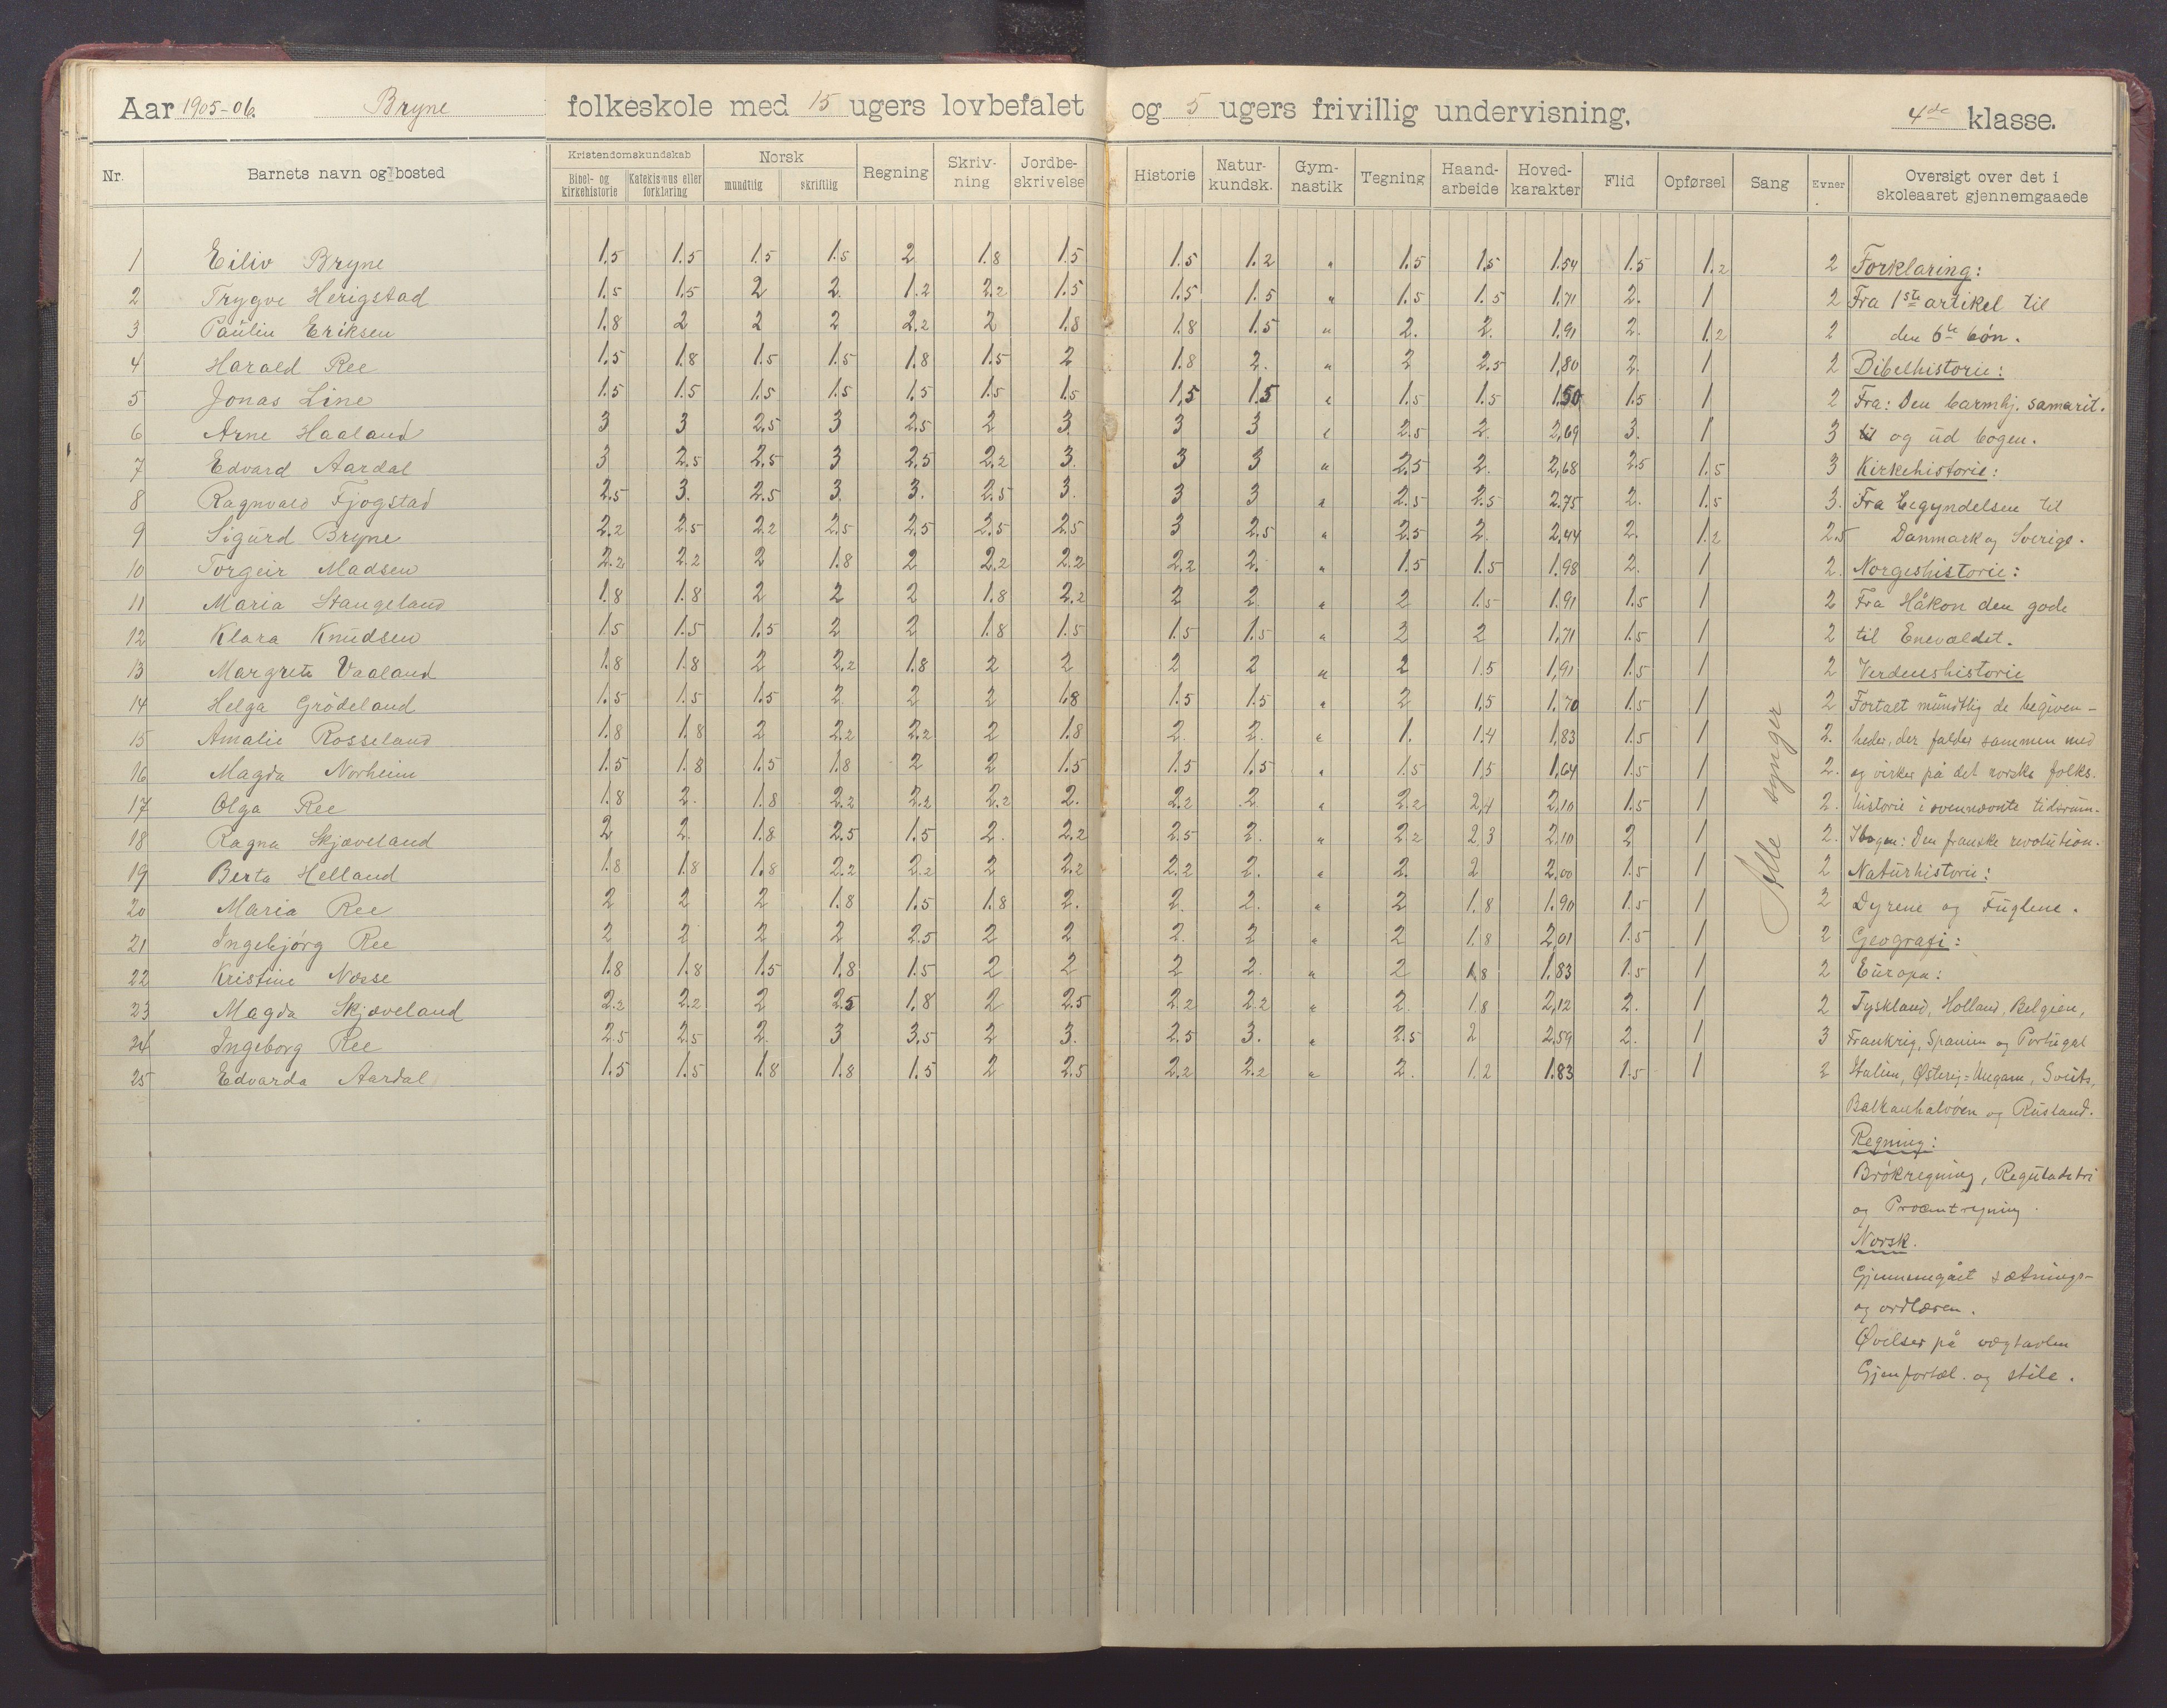 Aar 1905-06. Bryne folkeskole med 15 ugers lovbefalet og 5 ugers frivillig undervisning, 4de klasse.
Nr. Barnets navn og bosted Kristendomskundskab Bibel- og kirkehistorie Katekismus eller forklaring Norsk mundtlig skriftlig Regning Skriv-ning Jordbe-skrivelse Historie Natur-kundsk. Gym-nastik Tegning Haand-arbeide Hoved-karakter Flid Opførsel Sang Evner Oversigt over det i skoleaaret gjennemgaaede
1 Eiliv Bryne 1.5 1.5 1.5 1.5 2 1.8 1.5 1.5 1.2 " 1.5 1.5 1.54 1.5 1.2 2 Forklaring:
2 Trygve Herigstad 1.5 1.5 2 2 1.2 2.2 1.5 1.5 1.5 " 1.5 1.5 1,71 2. 1 2 Fra 1ste artikel til
3 Paulin Eriksen 1.8 2 2 2 2.2 2 1.8 1.8 1.5 " 2. 2. 1.91 2. 1.2 2 den 6te bøn.
4 Harald Ree 1.5 1.8 1.5 1.5 1.8 1.5 2 1.8 2. " 2 2.5 1,80 2. 1 2 Bibelhistorie:
5 Jonas Line 1.5 1.5 1.5 1.5 1.5 1.5 1.5 1.5 1.5 " 1.5 1.5 1,50 1.5 1 2 Fra: Den barmhj. samarit.
6 Arne Haaland 3 3 2.5 3 2.5 2 3. 3 3 " 2.5 2. 2,69 3. 1 3 til og ud bogen.
7 Edvard Aardal 3 2.5 2.5 3 2.5 2.2 3. 3 3 " 2.5 2. 2,68 2.5 1.5 3 Kirkehistorie:
8 Ragnvald Fjogstad 2.5 3. 2.5 3. 3. 2.5 3. 3 3 " 2.5 2.5 2.75 2. 1.5 3. Fra begyndelsen til
9 Sigurd Bryne 2.2 2.5 2.2 2.5 2.5 2.5 2.5 3 2.5 " 2.5 2. 2,44 2. 1.2 2.5 Danmark og Sverige.
10 Torgeir Madsen 2.2 2.2 2 1.8 2 2.2 2.2 2.2 2. " 1.5 1.5 1.98 2. 1 2. Norgeshistorie:
11 Maria Stangeland 1.8 1.8 2 2 2 1.8 2.2 2 2. " 2 1.5 1.91 1.5 1 2 Fra Håkon den gode
12 Klara Knudsen 1.5 1.5 1.5 2 2 1.8 1.5 1.5 1.5 " 2 2 1,71 1.5 1 2 til Enevældet.
13 Margrete Vaaland 1.8 1.8 2 2.2 1.8 2 2 2 2 " 2 1.5 1,91 1.5 1 2 Verdenshistorie
14 Helga Grödeland 1.5 1.5 1.5 2 2 2 1.8 1.5 1.5 " 2 1.5 1.70 1.5 1 2 Fortalt mundtlig de begiven-
15 Amalie Rosseland 1.8 1.8 2 2.2 2.2 2 1.8 2. 2. " 1. 1.4 1,83 1.5 1 2. heder, der falder sammen med
16 Magda Norheim 1.5 1.8 1.5 1.8 2 2 1.5 1.5 1.5 " 1.5 1.5 1,64 1.5 1 2. og virker på det norske folks.
17 Olga Ree 1.8 2. 1.8 2.2 2.2 2.2 2. 2.2 2 " 2.2 2,4 2,10 1.5 1 2. historie i ovennævnte tidsrum.
18 Ragna Skjæveland 2 2. 1.8 2.5 1.5 2. 2.2 2.5 2. " 2.2 2,3 2,10 2 1 2. I bogen: Den franske revolution.
19 Berta Helland 1.8 1.8 1.8 2.2 2.2 2 2.2 2.2 2. " 2. 2 2,00 1.5 1 2 Naturhistorie:
20 Maria Ree 2 2 2 1.8 1.5 1.8 2. 2. 2. " 2 1.8 1.90 1.5 1 2 Dyrene og Fuglene.
21 Ingebjørg Ree 2 2 2 2 2.5 2 2 2. 2 " 2 1.8 2,01 1.5 1 2 Geografi:
22 Kristine Næsse 1.8 1.8 1.5 1.8 1.5 2 2 2 2. " 2 1.8 1.83 1.5 1 2 Europa:
23 Magda Skjæveland 2.2 2.2 2 2.5 1.8 2 2.5 2.2 2.2 " 2. 1.8 2,12 2. 1 2 Tyskland, Holland, Belgien,
24 Ingeborg Ree 2.5 2.5 2. 3 3.5 2 3. 2.5 3. " 2.5 2 2,59 2. 1 3 Frankrig, Spanien og Portugal
25 Edvarda Aardal 1.5 1.5 1.8 1.8 1.5 2 2.5 2.2 2.2 " 2. 1.2 1.83 1.5 1 2 Italien, Østerig=Ungarn, Sveits,
Alle synger
Balkanhalvöen og Rusland.
Regning:
Brøkregning, Reguladetri
og Procentregning.
Norsk.
Gjennemgået sætnings-
og ordlæren.
Øvelser på vægtavlen
Gjenfortæl. og stile.